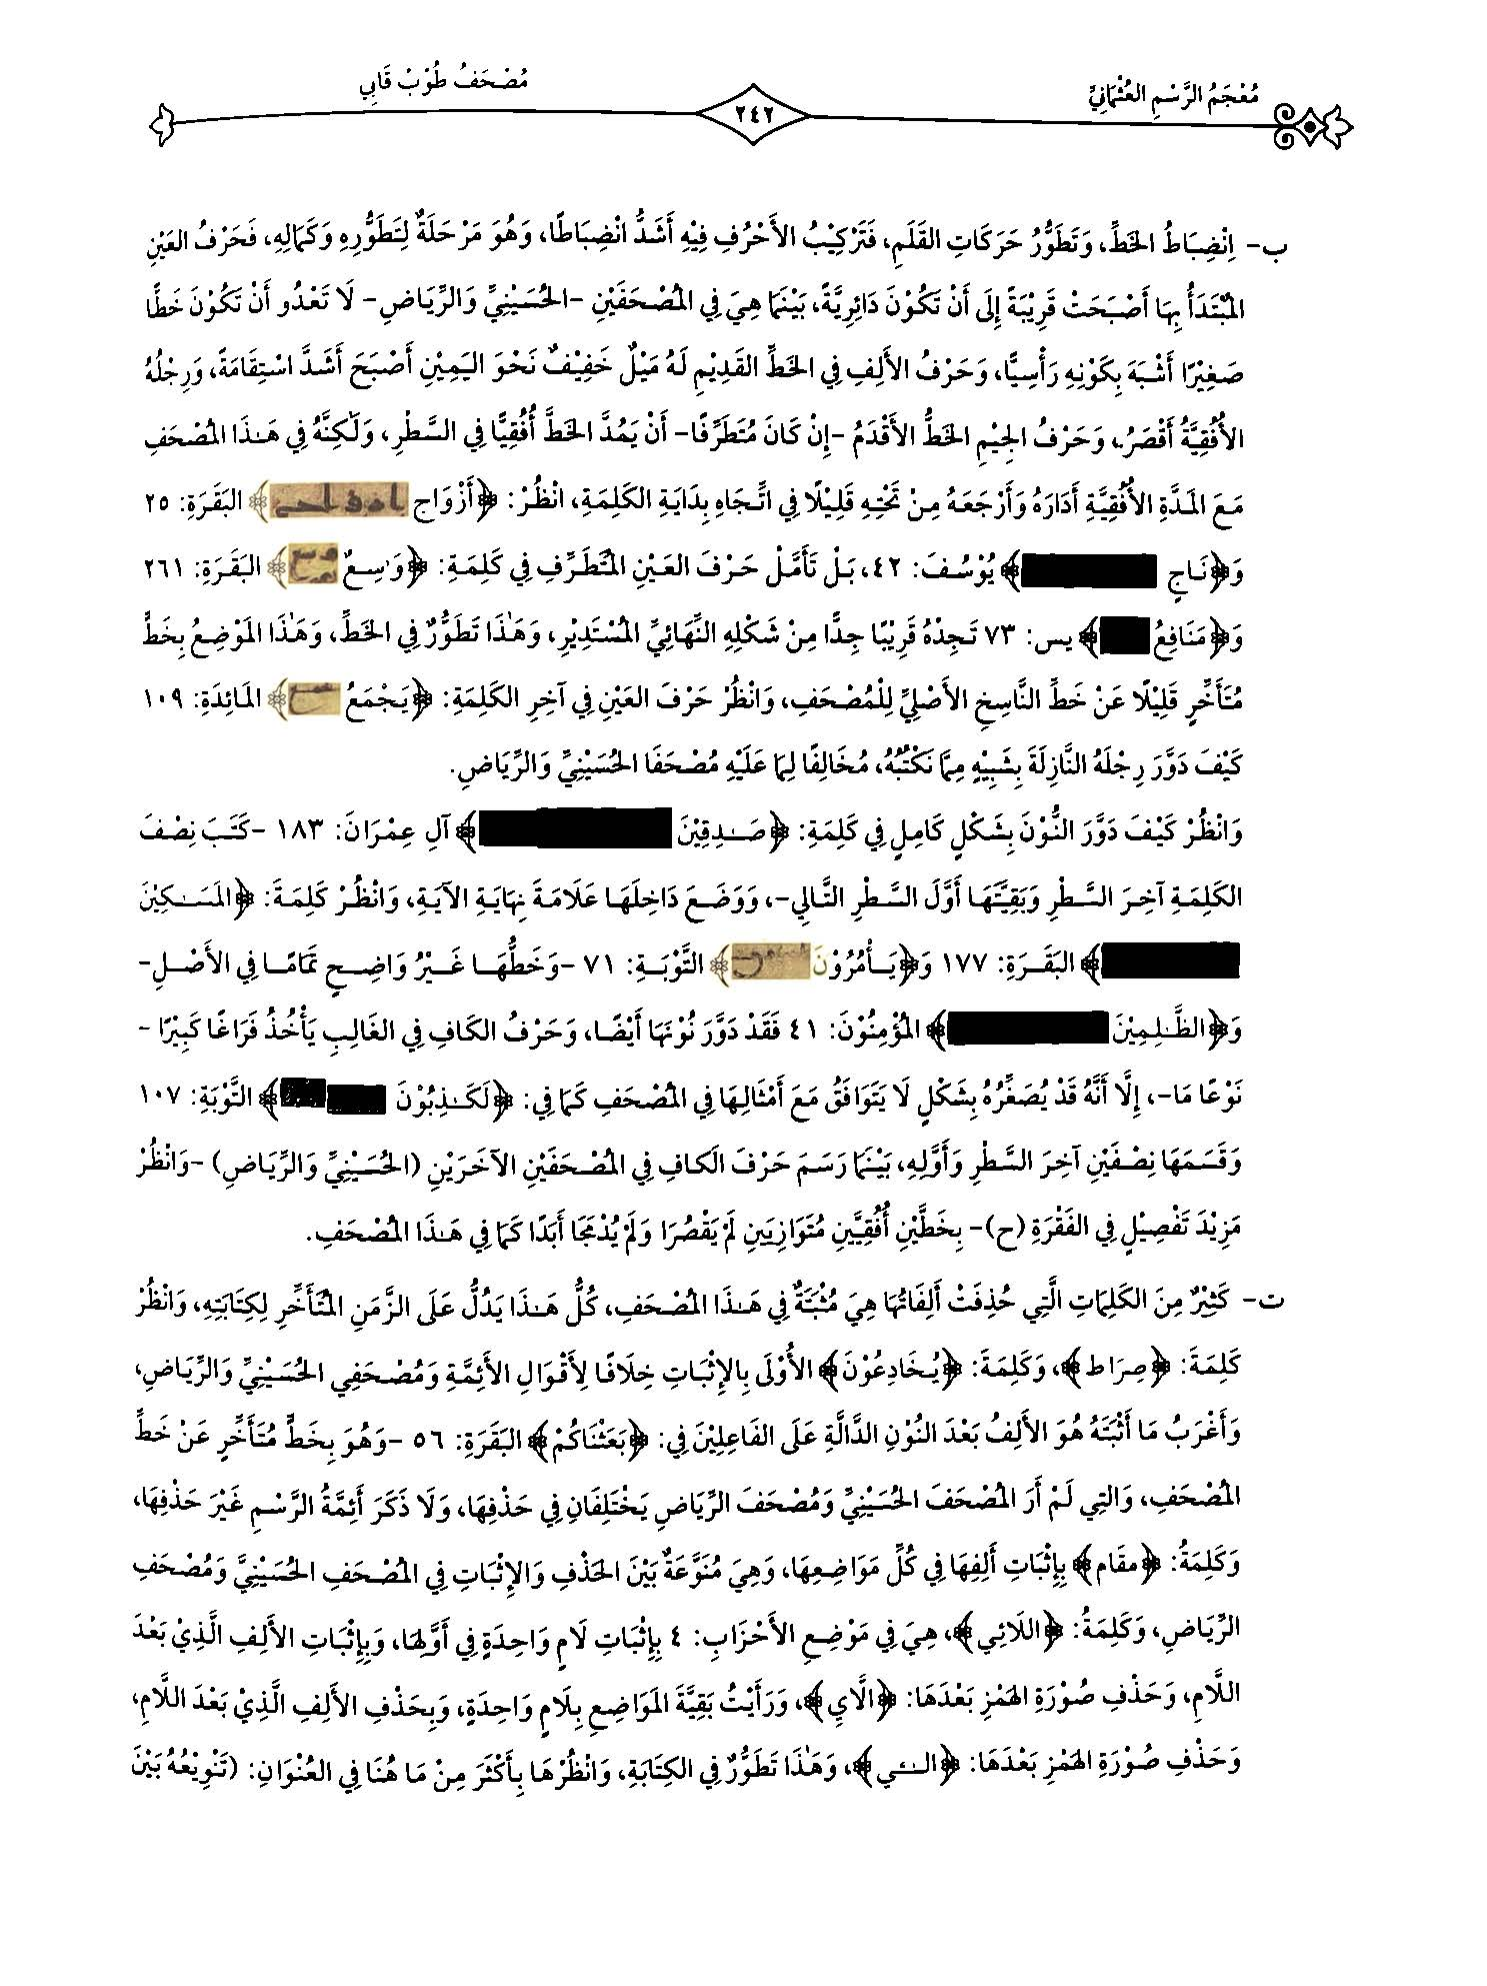 مُعْجَمُ الرَّسْمِ العُثْمَانِيِّ
٢٤٢
مُصْحَفُ طُوْبْ قَابِي
ب- اِنْضِبَاطُ الخَطِّ، وَتَطَوُّرُ حَرَكَاتِ القَلَمِ، فَتَرْكِيْبُ الأَحْرُفِ فِيْهِ أَشَدُّ انْضِبَاطًا، وَهُوَ مَرْحَلَةٌ لِتَطَوُّرِهِ وَكَمَالِهِ، فَحَرْفُ العَيْنِ
المُبْتَدَأُ بِهَا أَصْبَحَتْ قَرِيْبَةً إِلَى أَنْ تَكُوْنَ دَائِرِيَّةً، بَيْنَمَا هِيَ فِي المُصْحَفَيْنِ -الحُسَيْنِيِّ وَالرِّيَاضِ- لَا تَعْدُو أَنْ تَكُوْنَ خَطًّا
صَغِيْرًا أَشْبَهَ بِكَوْنِهِ رَأْسِيًّا، وَحَرْفُ الأَلِفِ فِي الخَطِّ القَدِيْمِ لَهُ مَيْلٌ خَفِيْفٌ نَحْوَ اليَمِيْنِ أَصْبَحَ أَشَدَّ اسْتِقَامَةً، وَرِجْلُهُ
الأُفُقِيَّةُ أَقْصَرُ، وَحَرْفُ الجِيْمِ الخَطُّ الأَقْدَمُ -إِنْ كَانَ مُتَطَرِّفًا- أَنْ يَمُدَّ الخَطَّ أُفُقِيًّا فِي السَّطْرِ، وَلَكِنَّهُ فِي هَـٰذَا المُصْحَفِ
مَعَ المَدَّةِ الأُفُقِيَّةِ أَدَارَهُ وَأَرْجَعَهُ مِنْ تَحْتِهِ قَلِيْلًا فِي اتِّجَاهِ بِدَايَةِ الكَلِمَةِ، انْظُرْ: ﴿أَزْوَاج﴾ البَقَرَةِ: ٢٥
وَ﴿نَاجٍ﴾ يُوْسُفَ: ٤٢، بَلْ تَأَمَّلْ حَرْفَ العَيْنِ المُتَطَرِّفِ فِي كَلِمَةِ: ﴿وَٰسِعٌ﴾ البَقَرَةِ: ٢٦١
وَ﴿مَنَافِعُ﴾ يس: ٧٣ تَجِدْهُ قَرِيْبًا جِدًّا مِنْ شَكْلِهِ النِّهَائِيِّ المُسْتَدِيْرِ، وَهَـٰذَا تَطَوُّرٌ فِي الخَطِّ، وَهَـٰذَا المَوْضِعُ بِخَطٍّ
مُتَأَخِّرٍ قَلِيْلًا عَنْ خَطِّ النَّاسِخِ الأَصْلِيِّ لِلْمُصْحَفِ، وَانْظُرْ حَرْفَ العَيْنِ فِي آخِرِ الكَلِمَةِ: ﴿يَجْمَعُ﴾ المَائِدَةِ: ١٠٩
كَيْفَ دَوَّرَ رِجْلَهُ النَّازِلَةَ بِشَبِيْهٍ مِمَّا نَكْتُبُهُ، مُخَالِفًا لِمَا عَلَيْهِ مُصْحَفَا الحُسَيْنِيِّ وَالرِّيَاضِ.
وَانْظُرْ كَيْفَ دَوَّرَ النُّوْنَ بِشَكْلٍ كَامِلٍ فِي كَلِمَةِ: ﴿صَـٰدِقِيْنَ﴾ آلِ عِمْرَانَ: ١٨٣ -كَتَبَ نِصْفَ
الكَلِمَةِ آخِرَ السَّطْرِ وَبَقِيَّتَهَا أَوَّلَ السَّطْرِ التَّالِي-، وَوَضَعَ دَاخِلَهَا عَلَامَةَ نِهَايَةِ الآيَةِ، وَانْظُرْ كَلِمَةَ: ﴿المَسَـٰكِيْنَ
﴾ البَقَرَةِ: ١٧٧ وَ﴿يَـأْمُرُوْنَ﴾ التَّوْبَـةِ: ٧١ -وَخَطُّهَـا غَـيْرُ وَاضِـحٍ تَمَامًـا فِي الأَصْـلِ-
وَ﴿الظَّـٰلِمِيْنَ﴾ المُؤْمِنُوْنَ: ٤١ فَقَدْ دَوَّرَ نُوْنَهَا أَيْضًا، وَحَرْفُ الكَافِ فِي الغَالِبِ يَأْخُذُ فَرَاغًا كَبِيْرًا -
نَوْعًا مَا-، إِلَّا أَنَّهُ قَدْ يُصَغِّرُهُ بِشَكْلٍ لَا يَتَوَافَقُ مَعَ أَمْثَالِهَا فِي المُصْحَفِ كَمَا فِي: ﴿لَكَـٰذِبُوْنَ﴾ التَّوْبَةِ: ١٠٧
وَقَسَمَهَا نِصْفَيْنِ آخِرَ السَّطْرِ وَأَوَّلِهِ، بَيْنَمَا رَسَمَ حَرْفَ الكافِ فِي المُصْحَفَيْنِ الآخَرَيْنِ (الحُسَيْنِيِّ وَالرِّيَاضِ) -وَانْظُرْ
مَزِيْدَ تَفْصِيْلٍ فِي الفَقْرَةِ (ح)- بِخَطَّيْنِ أُفُقِيَّيْنِ مُتَوَازِيَيْنِ لَمْ يَقْصُرَا وَلَمْ يُدْمَجَا أَبَدًا كَمَا فِي هَـٰذَا المُصْحَفِ.
ت- كَثِيْرٌ مِنَ الكَلِمَاتِ الَّتِي حُذِفَتْ أَلِفَاتُهَا هِيَ مُثْبَتَةٌ فِي هَـٰذَا المُصْحَفِ، كُلُّ هَـٰذَا يَدُلُّ عَلَى الزَّمَنِ المُتَأَخِّرِ لِكِتَابَتِهِ، وَانْظُرْ
كَلِمَةَ: ﴿صِرَاط﴾، وَكَلِمَةَ: ﴿يُخَادِعُوْنَ﴾ الأُوْلَى بِالإِثْبَاتِ خِلَافًا لِأَقْوَالِ الأَئِمَّةِ وَمُصْحَفِي الحُسَيْنِيِّ وَالرِّيَاضِ،
وَأَغْرَبُ مَا أَثْبَتَهُ هُوَ الأَلِفُ بَعْدَ النُّوْنِ الدَّالَّةِ عَلَى الفَاعِلِيْنَ فِي: ﴿بَعَثْنَاكُمْ﴾ البَقَرَةِ: ٥٦ -وَهُوَ بِخَطٍّ مُتَأَخِّرٍ عَنْ خَطِّ
المُصْحَفِ، وَالتِي لَمْ أَرَ المُصْحَفَ الحُسَيْنِيَّ وَمُصْحَفَ الرِّيَاضِ يَخْتَلِفَانِ فِي حَذْفِهَا، وَلَا ذَكَرَ أَئِمَّةُ الرَّسْمِ غَيْرَ حَذْفِهَا،
وَكَلِمَةُ: ﴿مقَام﴾ بِإِثْبَاتِ أَلِفِهَا فِي كُلِّ مَوَاضِعِهَا، وَهِيَ مُنَوَّعَةٌ بَيْنَ الحَذْفِ وَالإِثْبَاتِ فِي المُصْحَفِ الحُسَيْنِيِّ وَمُصْحَفِ
الرِّيَاضِ، وَكَلِمَةُ: ﴿اللَائِي﴾، هِيَ فِي مَوْضِعِ الأَحْزَابِ: ٤ بِإِثْبَاتِ لَامٍ وَاحِدَةٍ فِي أَوَّلِهَا، وَبِإِثْبَاتِ الأَلِفِ الَّذِيْ بَعْدَ
اللَّامِ، وَحَذْفِ صُوْرَةِ الهَمْزِ بَعْدَهَا: ﴿الَّايِ﴾، وَرَأَيْتُ بَقِيَّةَ المَوَاضِعِ بِلَامٍ وَاحِدَةٍ، وَبِحَذْفِ الأَلِفِ الَّذِيْ بَعْدَ اللَّامِ،
وَحَذْفِ صُوْرَةِ الهَمْزِ بَعْدَهَا: ﴿الـــٔـي﴾، وَهَـٰذَا تَطَوُّرٌ فِي الكِتَابَةِ، وَانْظُرْهَا بِأَكْثَرَ مِنْ مَا هُنَا فِي العُنْوَانِ: (تَنْوِيْعُهُ بَيْنَ